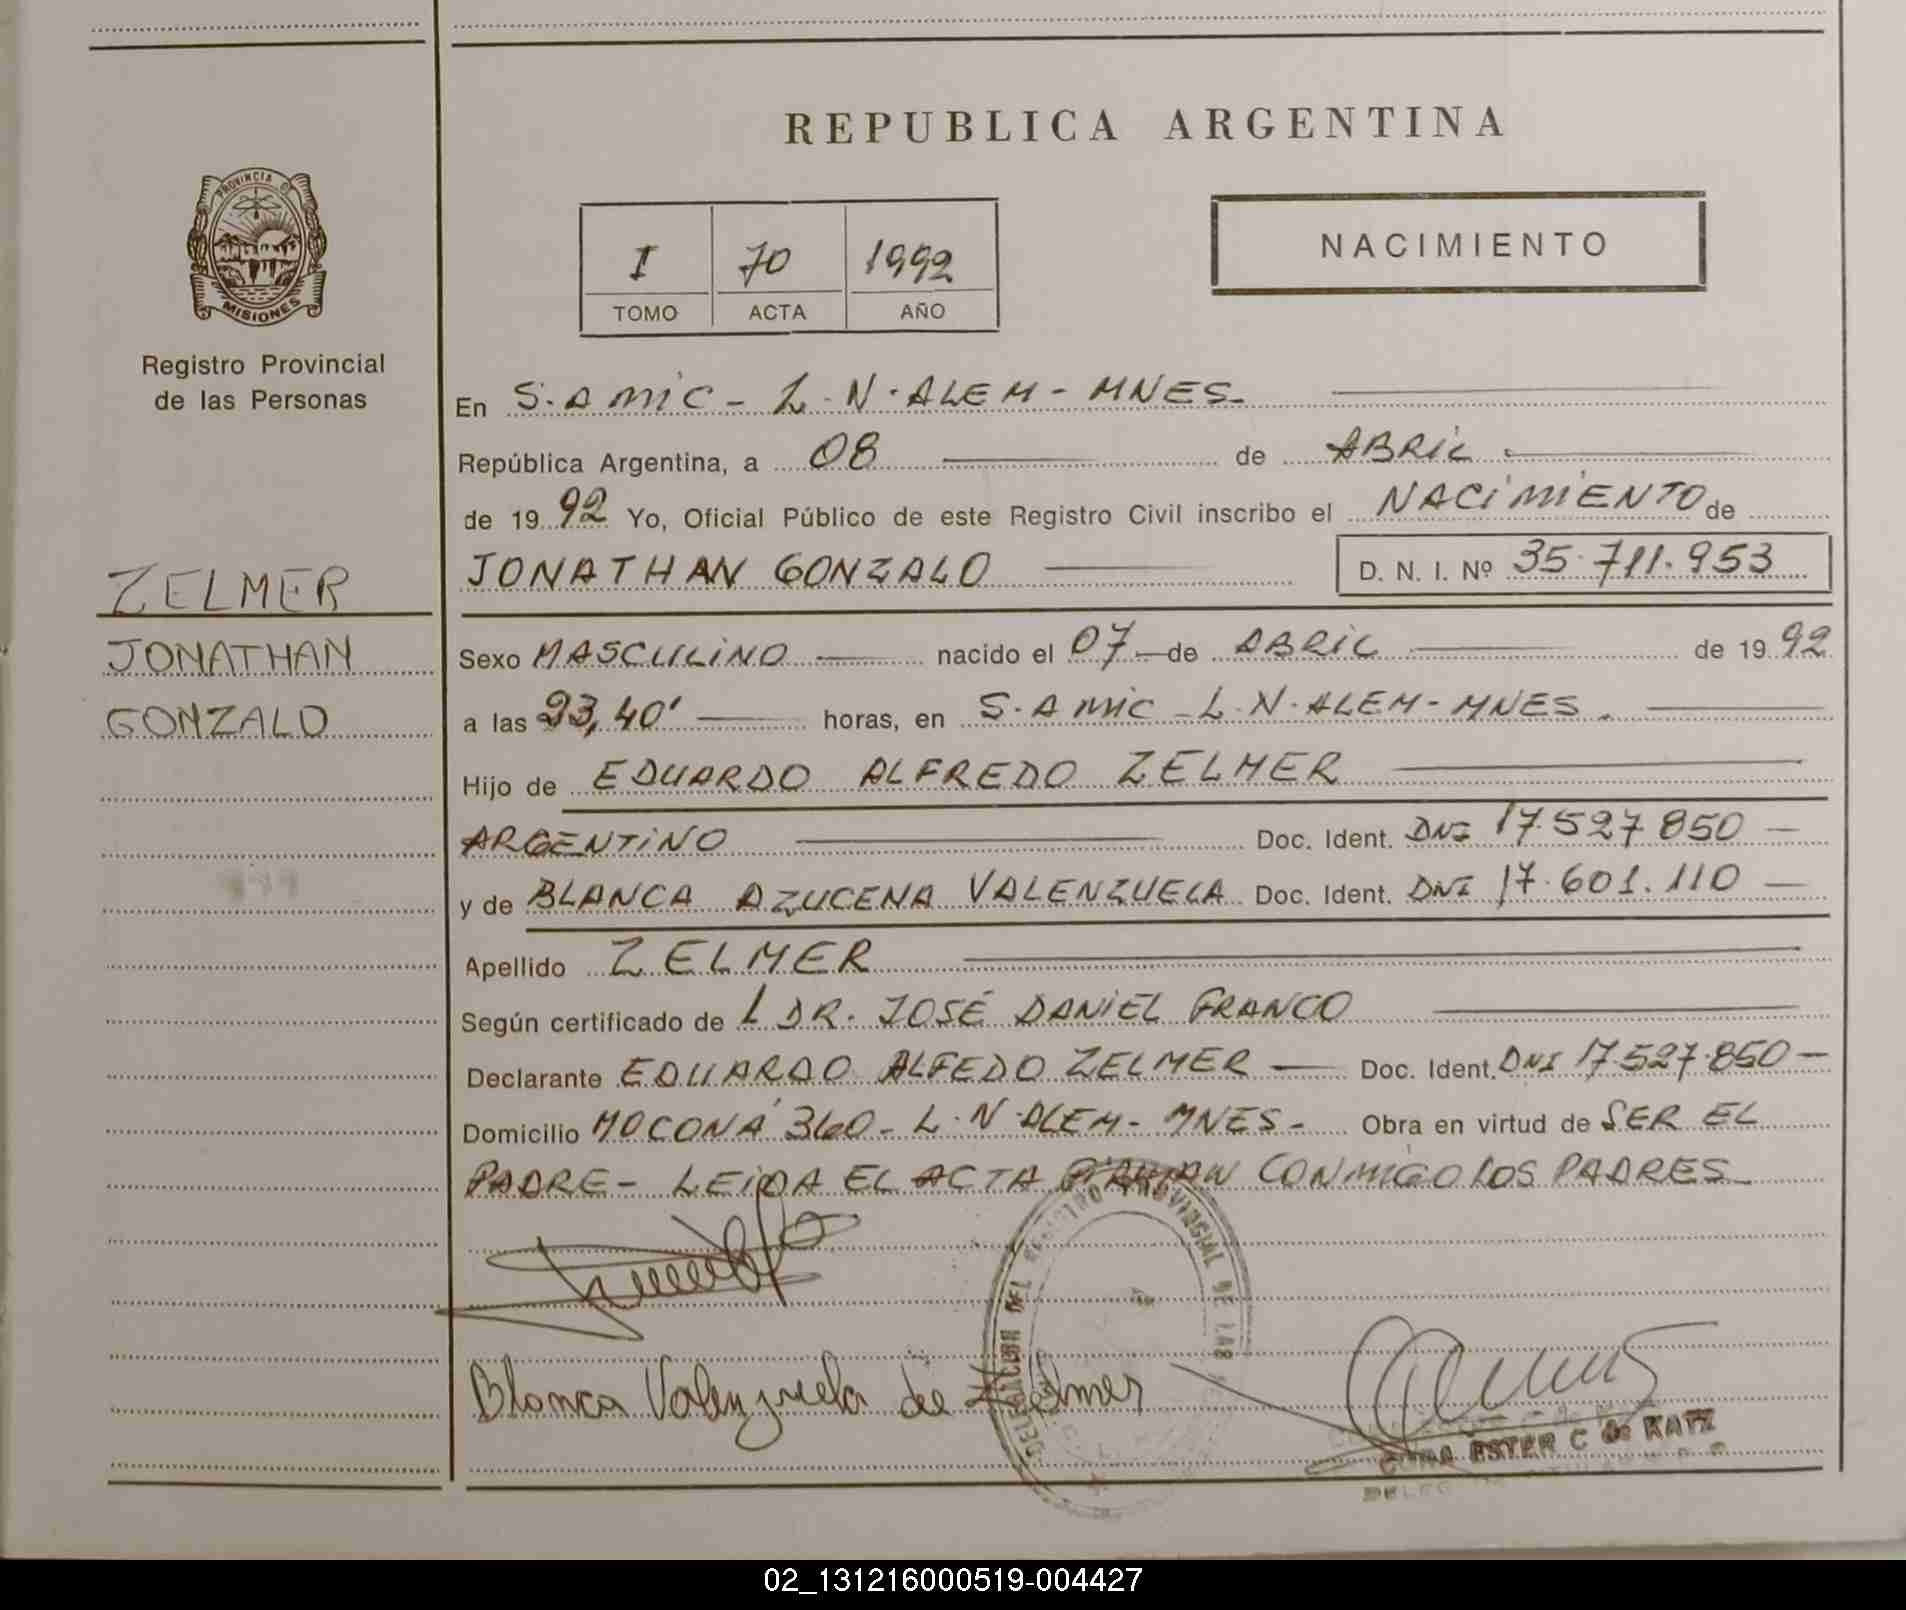 REPUBLICA ARGENTINA
PROVINCIA D
MISIONES
Registro Provincial
de las Personas
I 70 1992
TOMO ACTA AÑO
NACIMIENTO
En S. A MIC - L. N. ALEM - MNES.
República Argentina, a 08 de ABRIL
de 1992 Yo, Oficial Público de este Registro Civil inscribo el NACIMIENTO de
JONATHAN GONZALO D. N. I. Nº 35.711.953
ZELMER
JONATHAN
GONZALO
Sexo MASCULINO nacido el 07 de ABRIL de 1992
a las 23,40' horas, en S. A MIC - L. N. ALEM - MNES.
Hijo de EDUARDO ALFREDO ZELMER
ARGENTINO Doc. Ident. DNI 17.527.850
y de BLANCA AZUCENA VALENZUELA Doc. Ident. DNI 17.601.110
Apellido ZELMER
Según certificado de L DR. JOSÉ DANIEL FRANCO
Declarante EDUARDO ALFEDO ZELMER Doc. Ident. DNI 17.527.850
Domicilio MOCONÁ 360 - L. N. ALEM - MNES - Obra en virtud de SER EL
PADRE - LEIDA EL ACTA CONMIGO LOS PADRES
DELEGACION DEL REGISTRO PROVINCIAL DE LAS
Blanca Valenzuela de Zelmer
ESTER C de KATZ
02_131216000519-004427